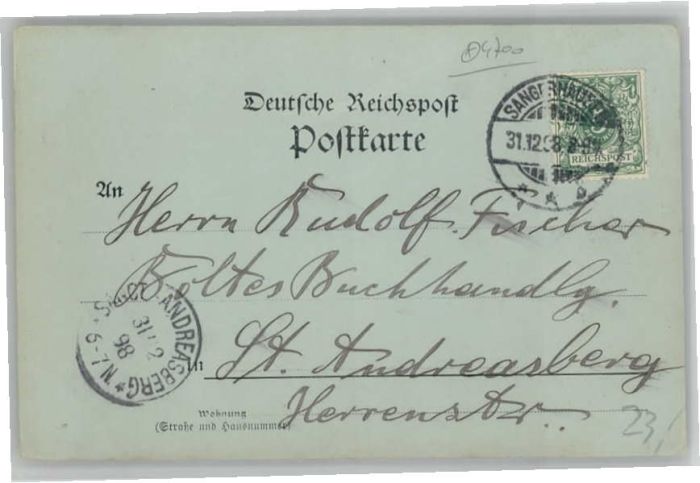 Deutsche Reichspost
Postkarte
SANGERHAUSEN
31.12.98
REICHSPOST
An
Herrn Rudolf Fischer
Boltes Buchhandlg.
in St. Andreasberg
Herrenstr.
Wohnung
(Straße und Hausnummer)
SANCT ANDREASBERG
31/12
98
N 7-9
23/